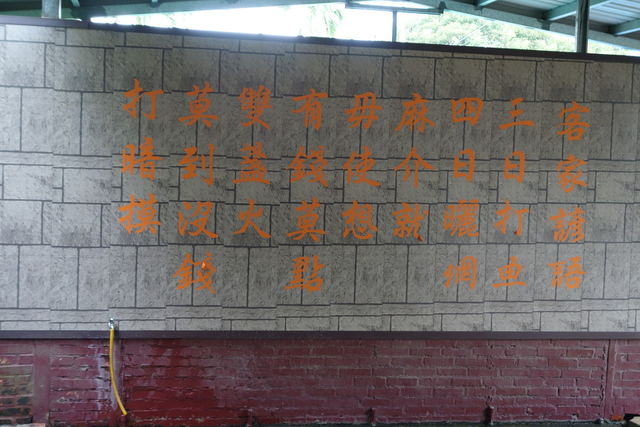 客家諺語
三日打虫
四日曬網
麻介就
毋使想
有錢莫點
雙盞火
莫到沒錢
打暗摸